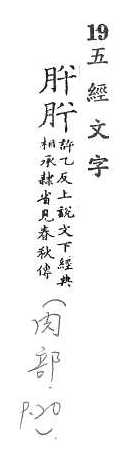 19 五經文字
肸肹
許乙反上說文下經典
相承隸省見春秋傳
(肉部 P.20)